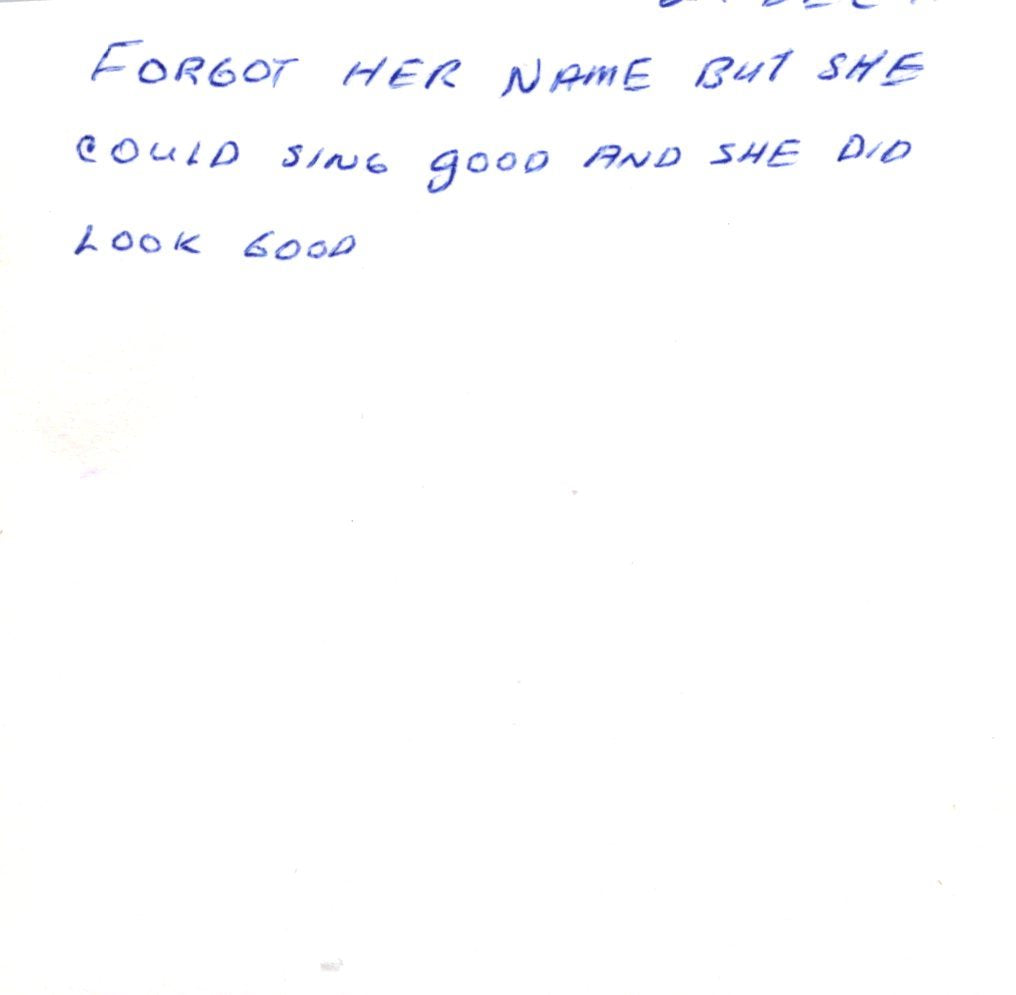 FORGOT HER NAME BUT SHE
COULD SING gOOD AND SHE DID
LOOK GOOD